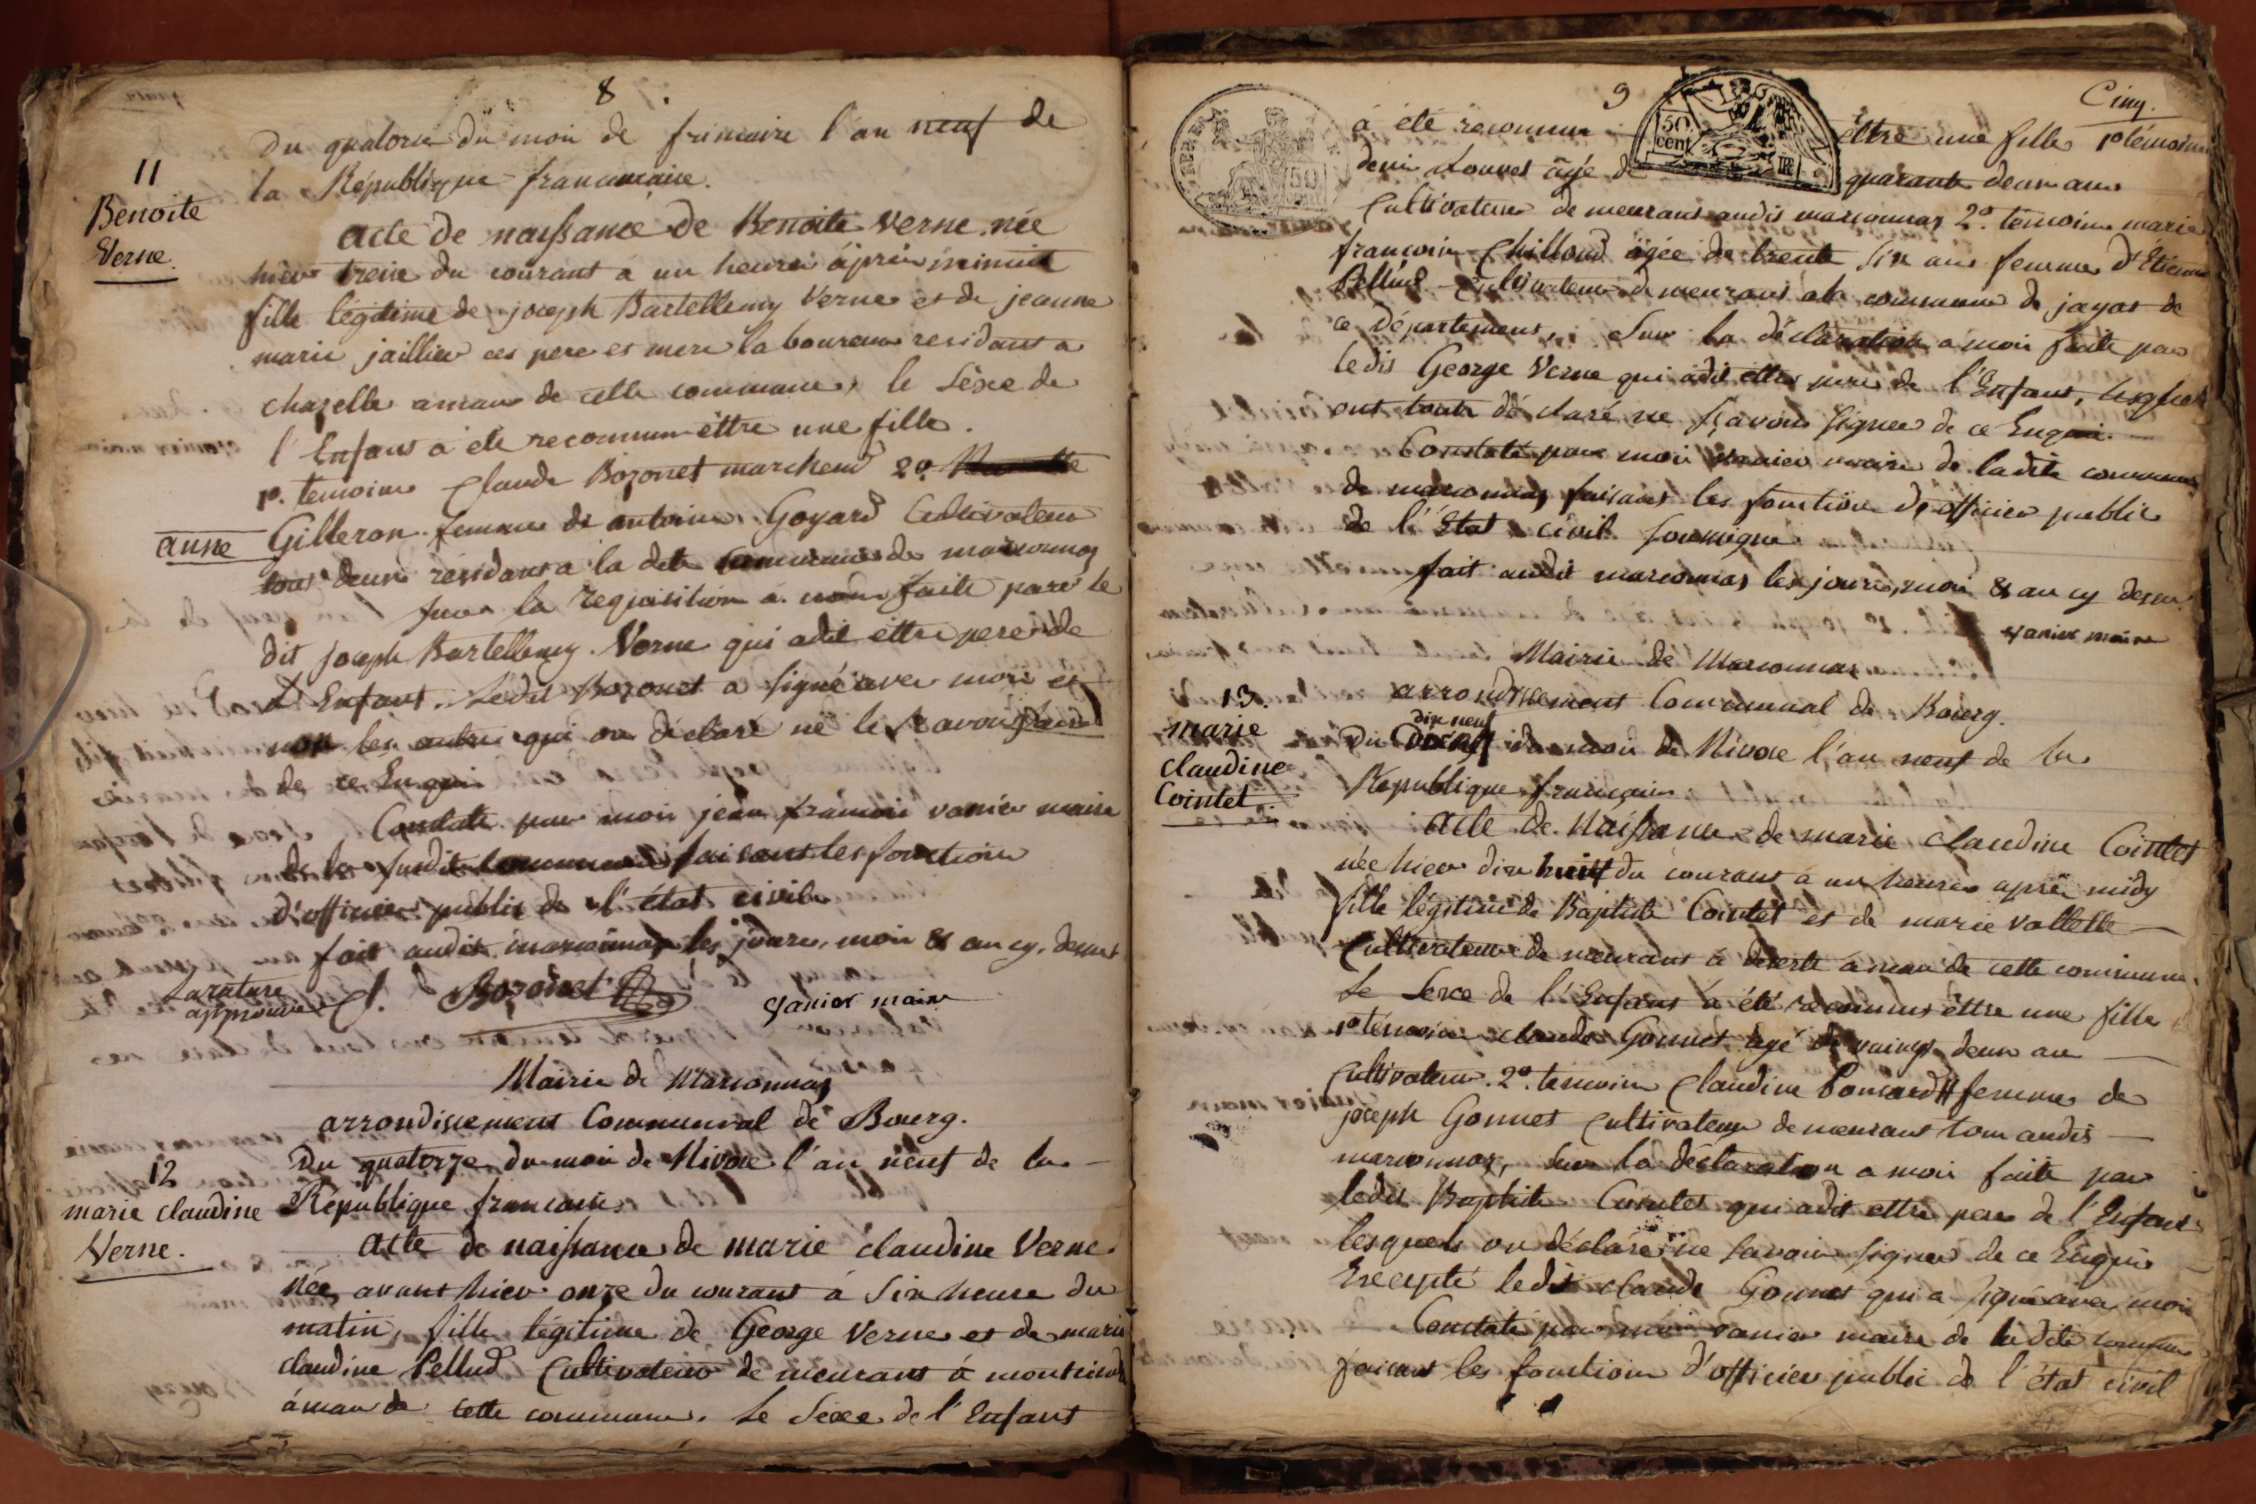 8
Du quatorze du mois de frimaire l'an neuf de
la République francaiaire.
11
Benoite
Verne.
acte de naissance de Benoite Verne née
hier treize du courant a un heure après minuit
fille légitime de joseph Bartellemy Verne et de jeanne
marie jaillier ces pere et mere laboureur residant a
chazelle amau de cette commune, le Séxe de
l'Enfant a été reconnu êttre une fille.
1º. temoins Claude Bozonet marchend 2º.
anne Gilleron femme de antoine Goyard Cultivateur
tous deux residant a la dite commune de marsonnas
sur la requisition a nous faite pare le
dit joseph Bartellemy Verne qui adit ettre pere de
l'Enfant. Ledit Bozonet a signé avec moi et
non les autre qui on déclaré ne le scavoir faire
de ce Enquis
Constaté par moi jean francois vanier maire
de la susdite commune faisant les fonction
d'officier public de l'état civil
fait audit marsonnas les jours, moi & an cy. dessus
rarature
approuvé C. Bozonet vanier maire
Mairie de Marsonnas
arrondissement Communal de Bourg.
Du quatorze du moi de Nivose l'an neuf de la
République francaise
12
marie claudine
Verne.
acte de naissance de marie claudine Verne
née avant hier onze du courant à Six heure du
matin, fille légitime de George Verne et de marie
claudine Pellud Cultivateur de meurant á montsimon
áman de cette commune. Le Séxe de l'Enfant
9
Cinq.
50
cent
á été reconnu êttre une fille 1º témoins
denis Louvet âgé de quarante deux ans
Cultivateur de meurant audit marsonnas 2º. témoins marie
francoise Chilloud agée de trente six ans femme d'Étienne
Pellud Cultivateur demeurant ala commune de jayat de
ce Département, Sur la déclaration á moi faite par
ledit George Verne qui adit êttre pere de l'Enfant, lesquels
ont toute déclaré ne sçavoir signer de ce Enquis.
Constaté par moi vanier maire de ladite commune
de marsonnas faisant les fonction d'officier public
de l'État civil soussigné
fait audit marsonnas les jours, moi & an cy dessus
vanier maire
Mairie de Marsonnas
arrondissement Communal de Bourg.
13.
marie
claudine
Cointet.
dix neuf
Du du moi de Nivose l'an neuf de la
Republique francaise
acte de Naissance de marie claudine Cointet
née hier dix huit du courant a un heure aprê midy
fille légitime de Baptiste Cointet et de marie Vallette
Cultivateur de meurant à deserte áman de cette commune.
Le Sexe de l'Enfant a été reconnus êttre une fille
1º témoins claude Gonnet agé de vaingt deux an
Cultivateur. 2º. temoins Claudine Ponsard femme de
joseph Gonnet Cultivateur demeurant tous audit
marsonnas, Sur la déclaration a moi faite par
ledit Baptiste Cointet qui adit êttre pere de l'Enfant
lesquels on déclaré ne savoir signer de ce Enquis
Excepté ledit claude Gonnet qui a signé avec moi
Constaté par moi vanier maire de ladite commune
faisant les fonction d'officier public de l'état civil